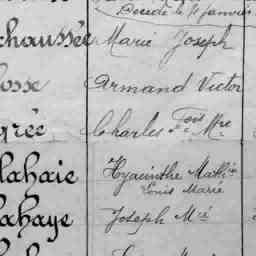 Décédé le 11 janvier
chaussée Marie Joseph
osse Armand Victor
grée Charles Fois Mie
lahaie Hyacinthe Mathin
Louis Marie
ahaye Joseph Mie